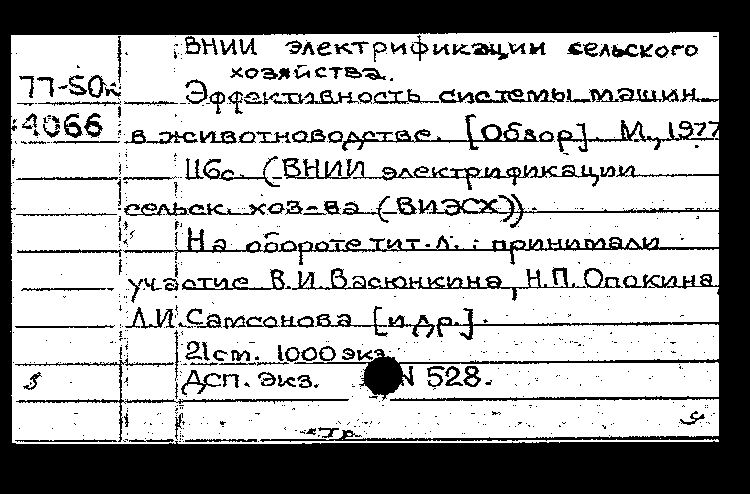 ВНИИ электрификации сельского
хозяйства.
77-50к
Эффективность системы машин
4066
в животноводстве. [Обзор]. М., 1977
116с. (ВНИИ электрификации
сельск. хоз-ва (ВИЭСХ))
На обороте тит.л.: принимали
участие В.И.Васюнкина, Н.П.Опокина,
Л.И.Самсонова [и др.].
21см. 1000 экз.
Дсп. Экз. N 528.